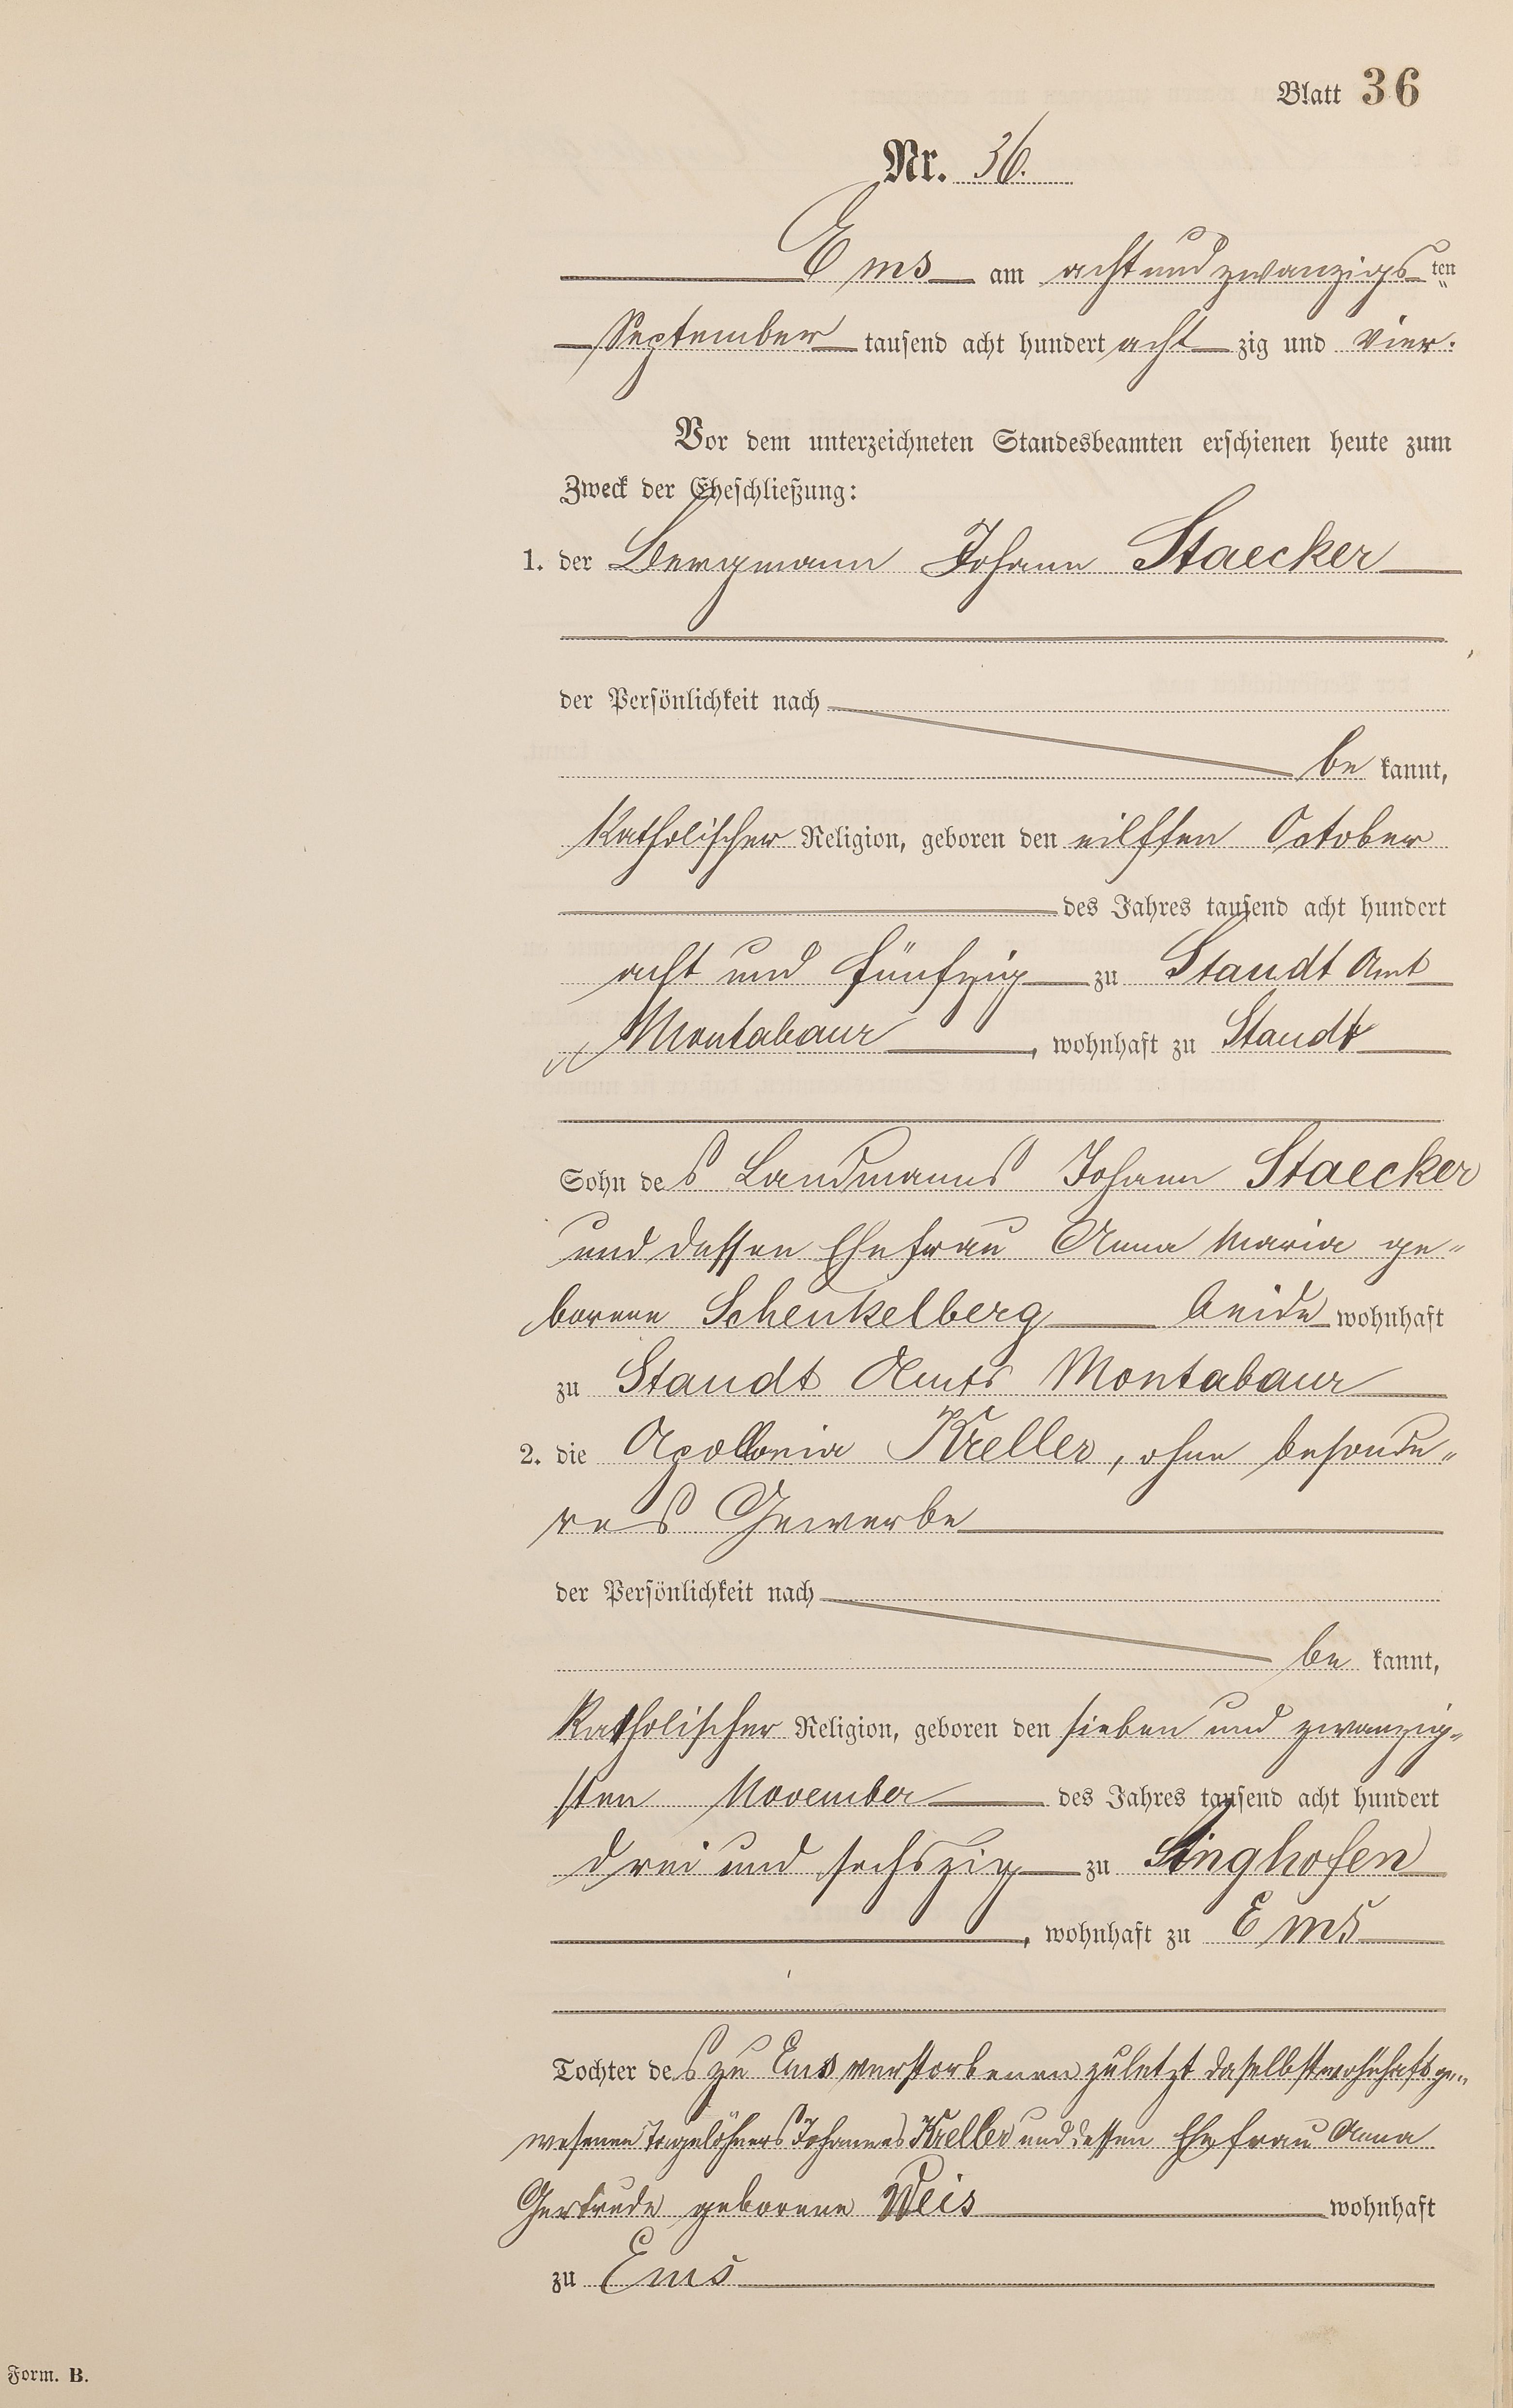 Blatt 36
Nr. 36.
Ems am achtundzwanzigsten
September tausend acht hundert achtzig und vier.
Vor dem unterzeichneten Standesbeamten erschienen heute zum
Zweck der Eheschließung:
1. der Bergmann Johann Staecker
der Persönlichkeit nach
bekannt,
katholischer Religion, geboren den eilften October
des Jahres tausend acht hundert
acht und fünfzig zu Staudt Amt
Montabaur, wohnhaft zu Staudt
Sohn des Landmanns Johann Staecker
und dessen Ehefrau Anna Maria ge-
borene Schenkelberg beide wohnhaft
zu Staudt Amts Montabaur
2. die Apollonia Kreller, ohne besonde-
res Gewerbe
der Persönlichkeit nach
bekannt,
katholischer Religion, geboren den sieben und zwanzig-
sten November des Jahres tausend acht hundert
drei und sechszig zu Singhofen
, wohnhaft zu Ems
Tochter des zu Ems verstorbenen zuletzt daselbst wohnhaft ge-
wesenen Tagelöhners Johannes Kreller und dessen Ehefrau Anna
Gertrude geborene Weis wohnhaft
zu Ems
Form. B.